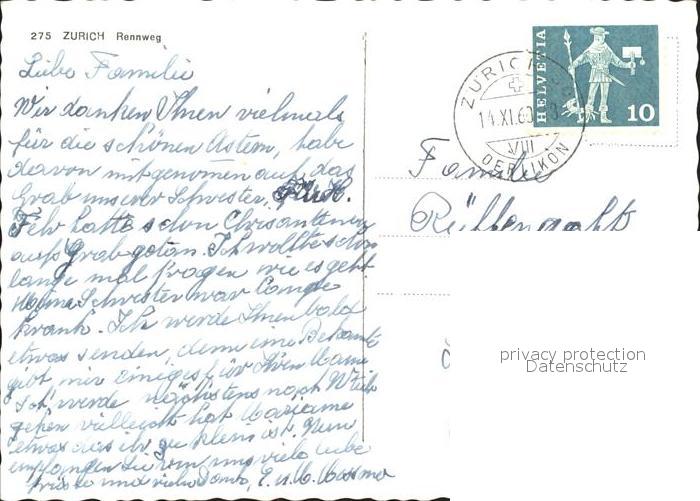 275 ZURICH Rennweg
HELVETIA
10
ZÜRICH
14.XI.60
VIII
OERLIKON
Liebe Familie
Wir danken Ihnen vielmals
für die schönen Astern, habe
davon mitgenommen auf das
Grab unserer Schwester,
Fehr hatte schon Chrisanttemen
aufs Grab getan. Ich wollte schon
lange mal fragen wie es geht
meine Schwester war lange
krank. Ich werde Ihnen bald
etwas senden, denn eine Bekannte
gibt mir einiges für Ihren
Ich werde nächstens nach
gehen vielleicht hat Mariame
etwas das ihr zu klein ist. Nun
empfangen Sie von uns viele liebe
und viele Dank, E. u. M.
Familie
privacy protection
Datenschutz